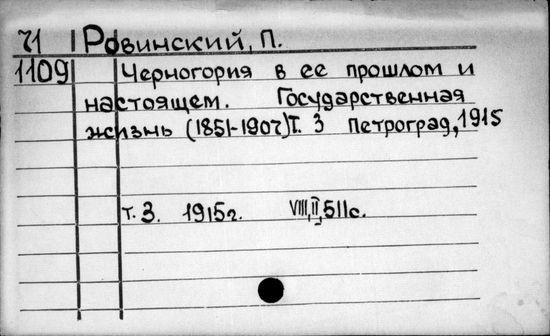 71 Ровинский, П.
1109 Черногория в ее прошлом и
настоящем. Государственная
жизнь (1851-1907) Т. 3 Петроград, 1915
т. 3. 1915г. VIII, II, 511с.